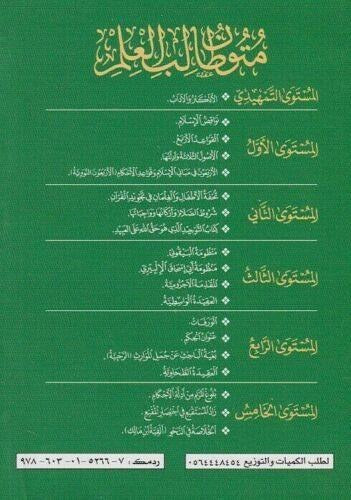 متون طالب العلم
المستوى التمهيدي
الأذكار والآداب.
المستوى الأول
نواقض الإسلام.
القواعد الأربع.
الأصول الثلاثة وأدلتها.
الأربعون في مباني الإسلام وقواعد الأحكام (الأربعون النووية).
المستوى الثاني
تحفة الأطفال والغلمان في تجويد القرآن.
شروط الصلاة وأركانها وواجباتها.
كتاب التوحيد الذي هو حق الله على العبيد.
المستوى الثالث
منظومة البيقوني.
منظومة أبي إسحاق الإلبيري.
المقدمة الآجرومية.
العقيدة الواسطية.
المستوى الرابع
الورقات.
عنوان الحكم.
بغية الباحث عن جمل الموارث (الرحبية).
العقيدة الطحاوية.
المستوى الخامس
بلوغ المرام من أدلة الأحكام.
زاد المستقنع في اختصار المقنع.
الخلاصة في النحو (ألفية ابن مالك).
لطلب الكميات والتوزيع ٠٥٦٤٤٤٨٤٥٤
ردمك: ٧-٥٢٦٦-٠١-٦٠٣-٩٧٨